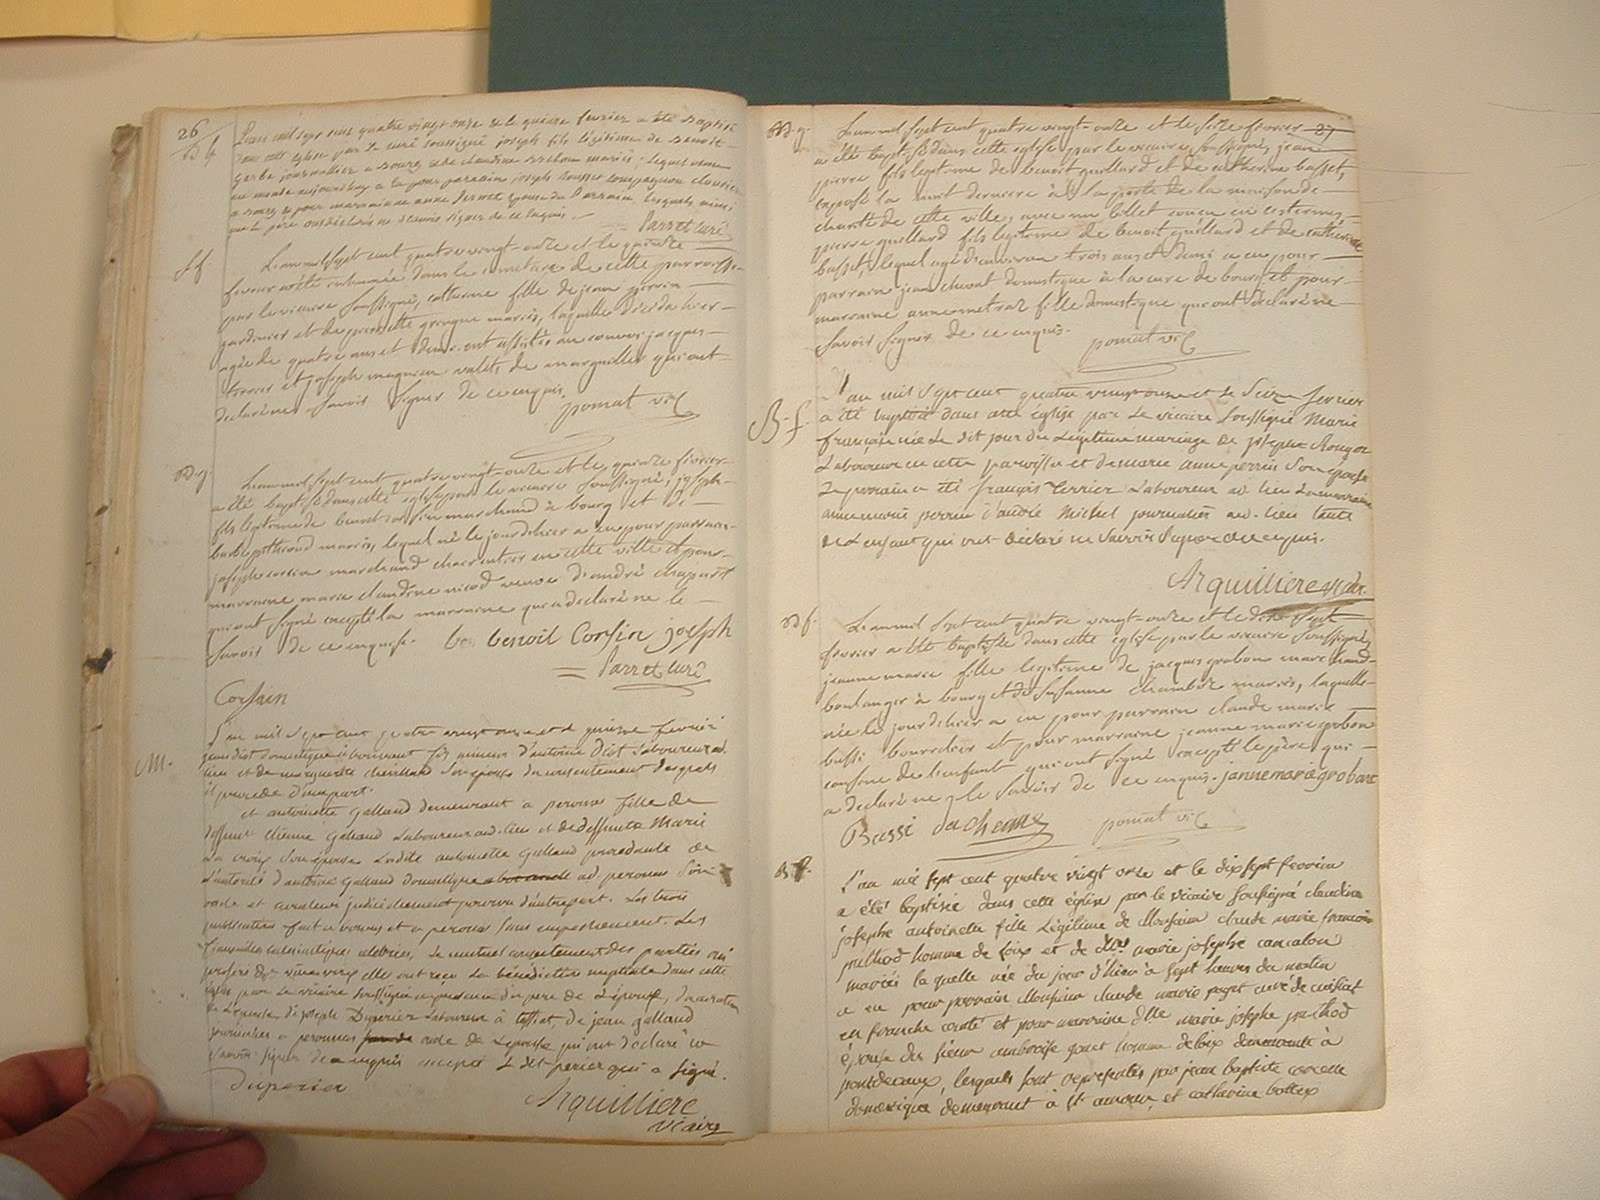 26
L'an mil sept cent quatre vingt onze et le quinze fevrier a été baptisé
dans cette eglise par le curé soussigné joseph fils légitime de benoit
journallier a bourg et de claudine mariés lequel venu
au monde aujourdhuy a eu pour parrain joseph rousset compagnon
a bourg et pour marraine anne epouse du parrain lesquels ainsi
que le père ont déclaré ne sçavoir signer de ce enquis
Parret curé
S f.
L'an mil sept cent quatre vingt-onze et le quinze
fevrier a été inhumée dans le cimetiere de cette parroisse
par le vicaire soussigné, catherine fille de jean
jardinier et de pierrette mariés, laquelle décéda hier
agée de quatre ans et demi. ont assistés au convoi jacques
et joseph valets de marguillier qui ont
déclaré ne savoir signer de ce enquis.
pomat vic
B g.
L'an mil sept cent quatre vingt-onze et le quinze fevrier
a été baptisé dans cette eglise par le vicaire soussigné, joseph
fils legitime de benoit corsin marchand à bourg et de
barbe mariés, lequel né le jour d'hier a eu pour parrain
joseph corsin marchand charcutier en cette ville et pour
marraine marie claudine nicod veuve d'andré
qui ont signé excepté la marraine qui a déclaré ne le
savoir de ce enquise. benoit Corsin joseph
Parret curé
Corsain
M.
L'an mil sept cent quatre vingt onze et le quinze fevrier
jean domestique fils mineur d'antoine laboureur ad.
lieu et de marguerite son epouse du consentement desquels
il procede d'une part.
et antoinette Galland demeurant a peronas fille de
deffunt etienne Galland Laboureur aud. lieu et de deffunte Marie
La croix son épouse Ladite antoinette Galland procedante de
l'autorité d'antoine Galland domestique ad. peronas son
oncle et curateur judiciairement pourvu d'autre part. Les trois
publications faites a et a peronas sans empechement. Les
fiancailles celebrées, le mutuel consentement des parties oui
proféré de vive voix elles ont reçu La bénédiction nuptiale dans cette
église par Le vicaire soussigné en présence du pere de L'épouse, du curateur
de L'épouse, de joseph Duperier Laboureur à, de jean galland
journalier a peronas oncle de L'epouse qui ont déclaré ne
savoir signer de ce enquis excepté Le dit perier qui a signé.
Duperier
Arquilliere
vicaire
B g.
L'an mil sept cent quatre vingt-onze et le seize fevrier 27
a été baptisé dans cette eglise par le vicaire soussigné, jean
pierre fils legitime de benoit guillard et de catherine basset,
exposé la nuit derniere à la porte de la maison de
charité de cette ville, avec un billet conçu en ces termes,
pierre guillard fils legitime de benoit guillard et de catherine
basset, lequel agé d'environ trois ans et demi a eu pour
parrain jean domestique à la cure de bourg et pour
marraine anne metraz fille domestique qui ont déclaré ne
savoir signer de ce enquis.
pomat vic
B. f.
L'an mil sept cent quatre vingt onze et le Seize fevrier
a été baptisée dans cette église par Le vicaire soussigné Marie
françoise née Le dit jour du Légitime mariage de joseph
Laboureur en cette paroisse et de marie anne perrin son epouse
Le parrain a été françois Terrier Laboureur ad. lieu La marraine
anne marie perrin d'andré Michel journalier ad. lieu tante
de L'enfant qui ont déclaré ne savoir signer de ce enquis.
Arquilliere vicaire
B f.
L'an mil sept cent quatre vingt-onze et le dix sept
fevrier a été baptisée dans cette eglise par le vicaire soussigné,
jeanne marie fille legitime de jacques grobon marchand
boulanger à bourg et de susanne chambre mariés, laquelle
née le jour d'hier a eu pour parrain claude marie
bussi bourrelier et pour marraine jeanne marie grobon
cousine de l'enfant qui ont signé excepté le père qui
a déclaré ne le savoir de ce enquis. jannemarie grobon
Bussi pomat vic
B f.
L'an mil sept cent quatre vingt onze et le dix sept fevrier
a été baptisée dans cette église par le vicaire soussigné claudine
josephe antoinette fille Légitime de Monsieur claude marie françois
puthod homme de loix et de dlle marie josephe cancalon
mariés la quelle née du jour d'hier à sept heures du matin
a eu pour parrain Monsieur claude marie curé de cuisiat
en franche comté et pour marraine dlle marie josephe puthod
épouse du sieur ambroise homme de loix demeurant à
pontdevaux, lesquels sont représentés par jean baptiste
domestique demeurant à st amour, et catherine bottex